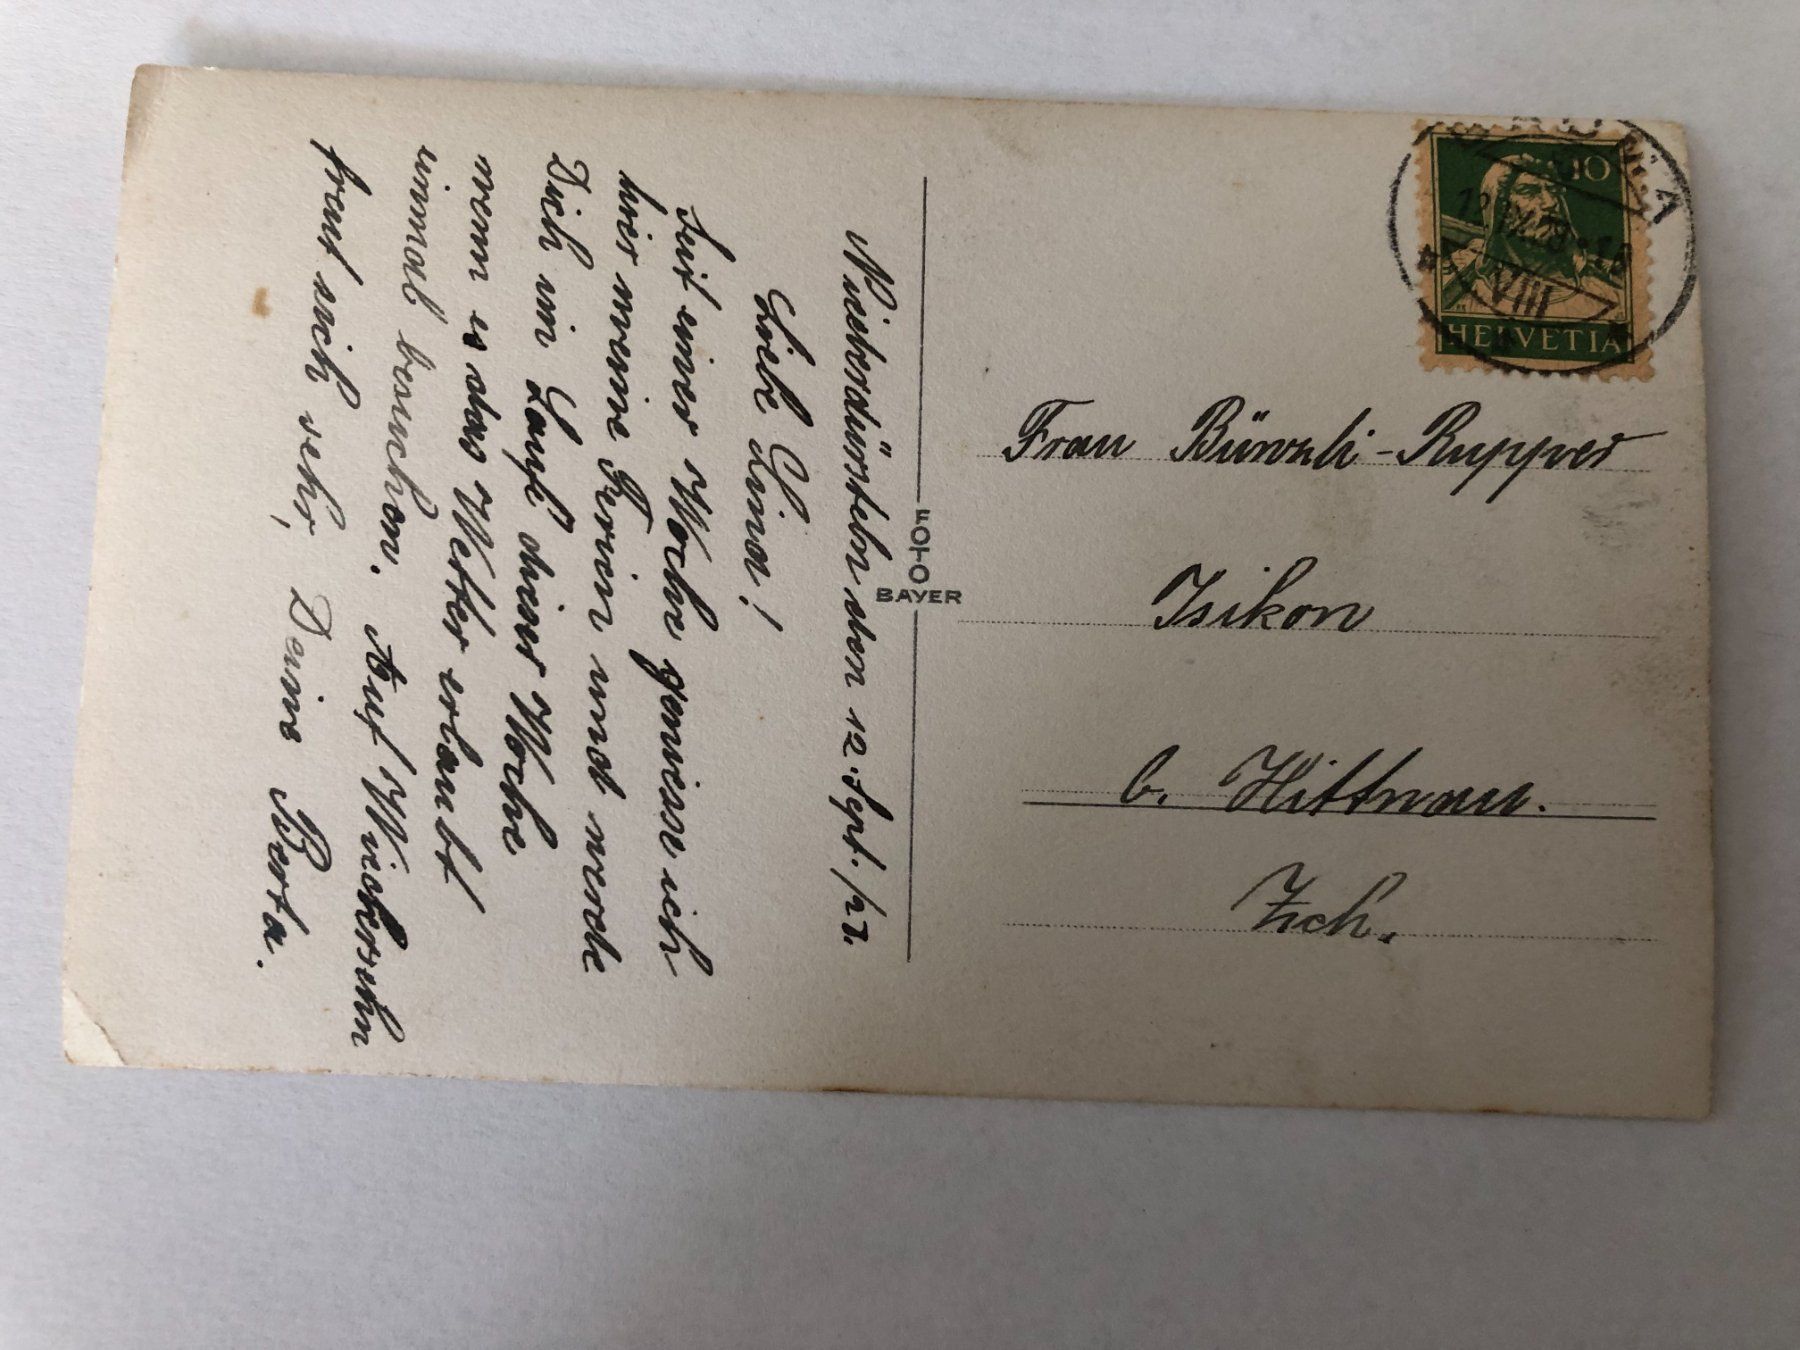 Niederdürstelen den 12. Sept. /23.
Liebe Lina!
Seit einer Woche geniesse ich
hier meine Ferien und werde
Dich im Laufe dieser Woche
wenn es das Wetter erlaubt
einmal besuchen. Auf Wiedersehn
freut sich sehr, Deine Berta.
FOTO
BAYER
10
HELVETIA
VIII
Frau Bünzli-Rupper
Isikon
b. Hittnau.
Zch.